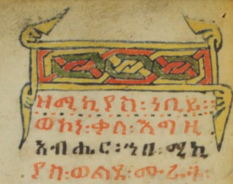 ዘሚኪያስ፡ ነቢይ፡፡
ወኮነ፡ ቃለ፡ እግዚ
አብሔር፡ ኀበ፡ ሚኪ
ያስ፡ ወልደ፡